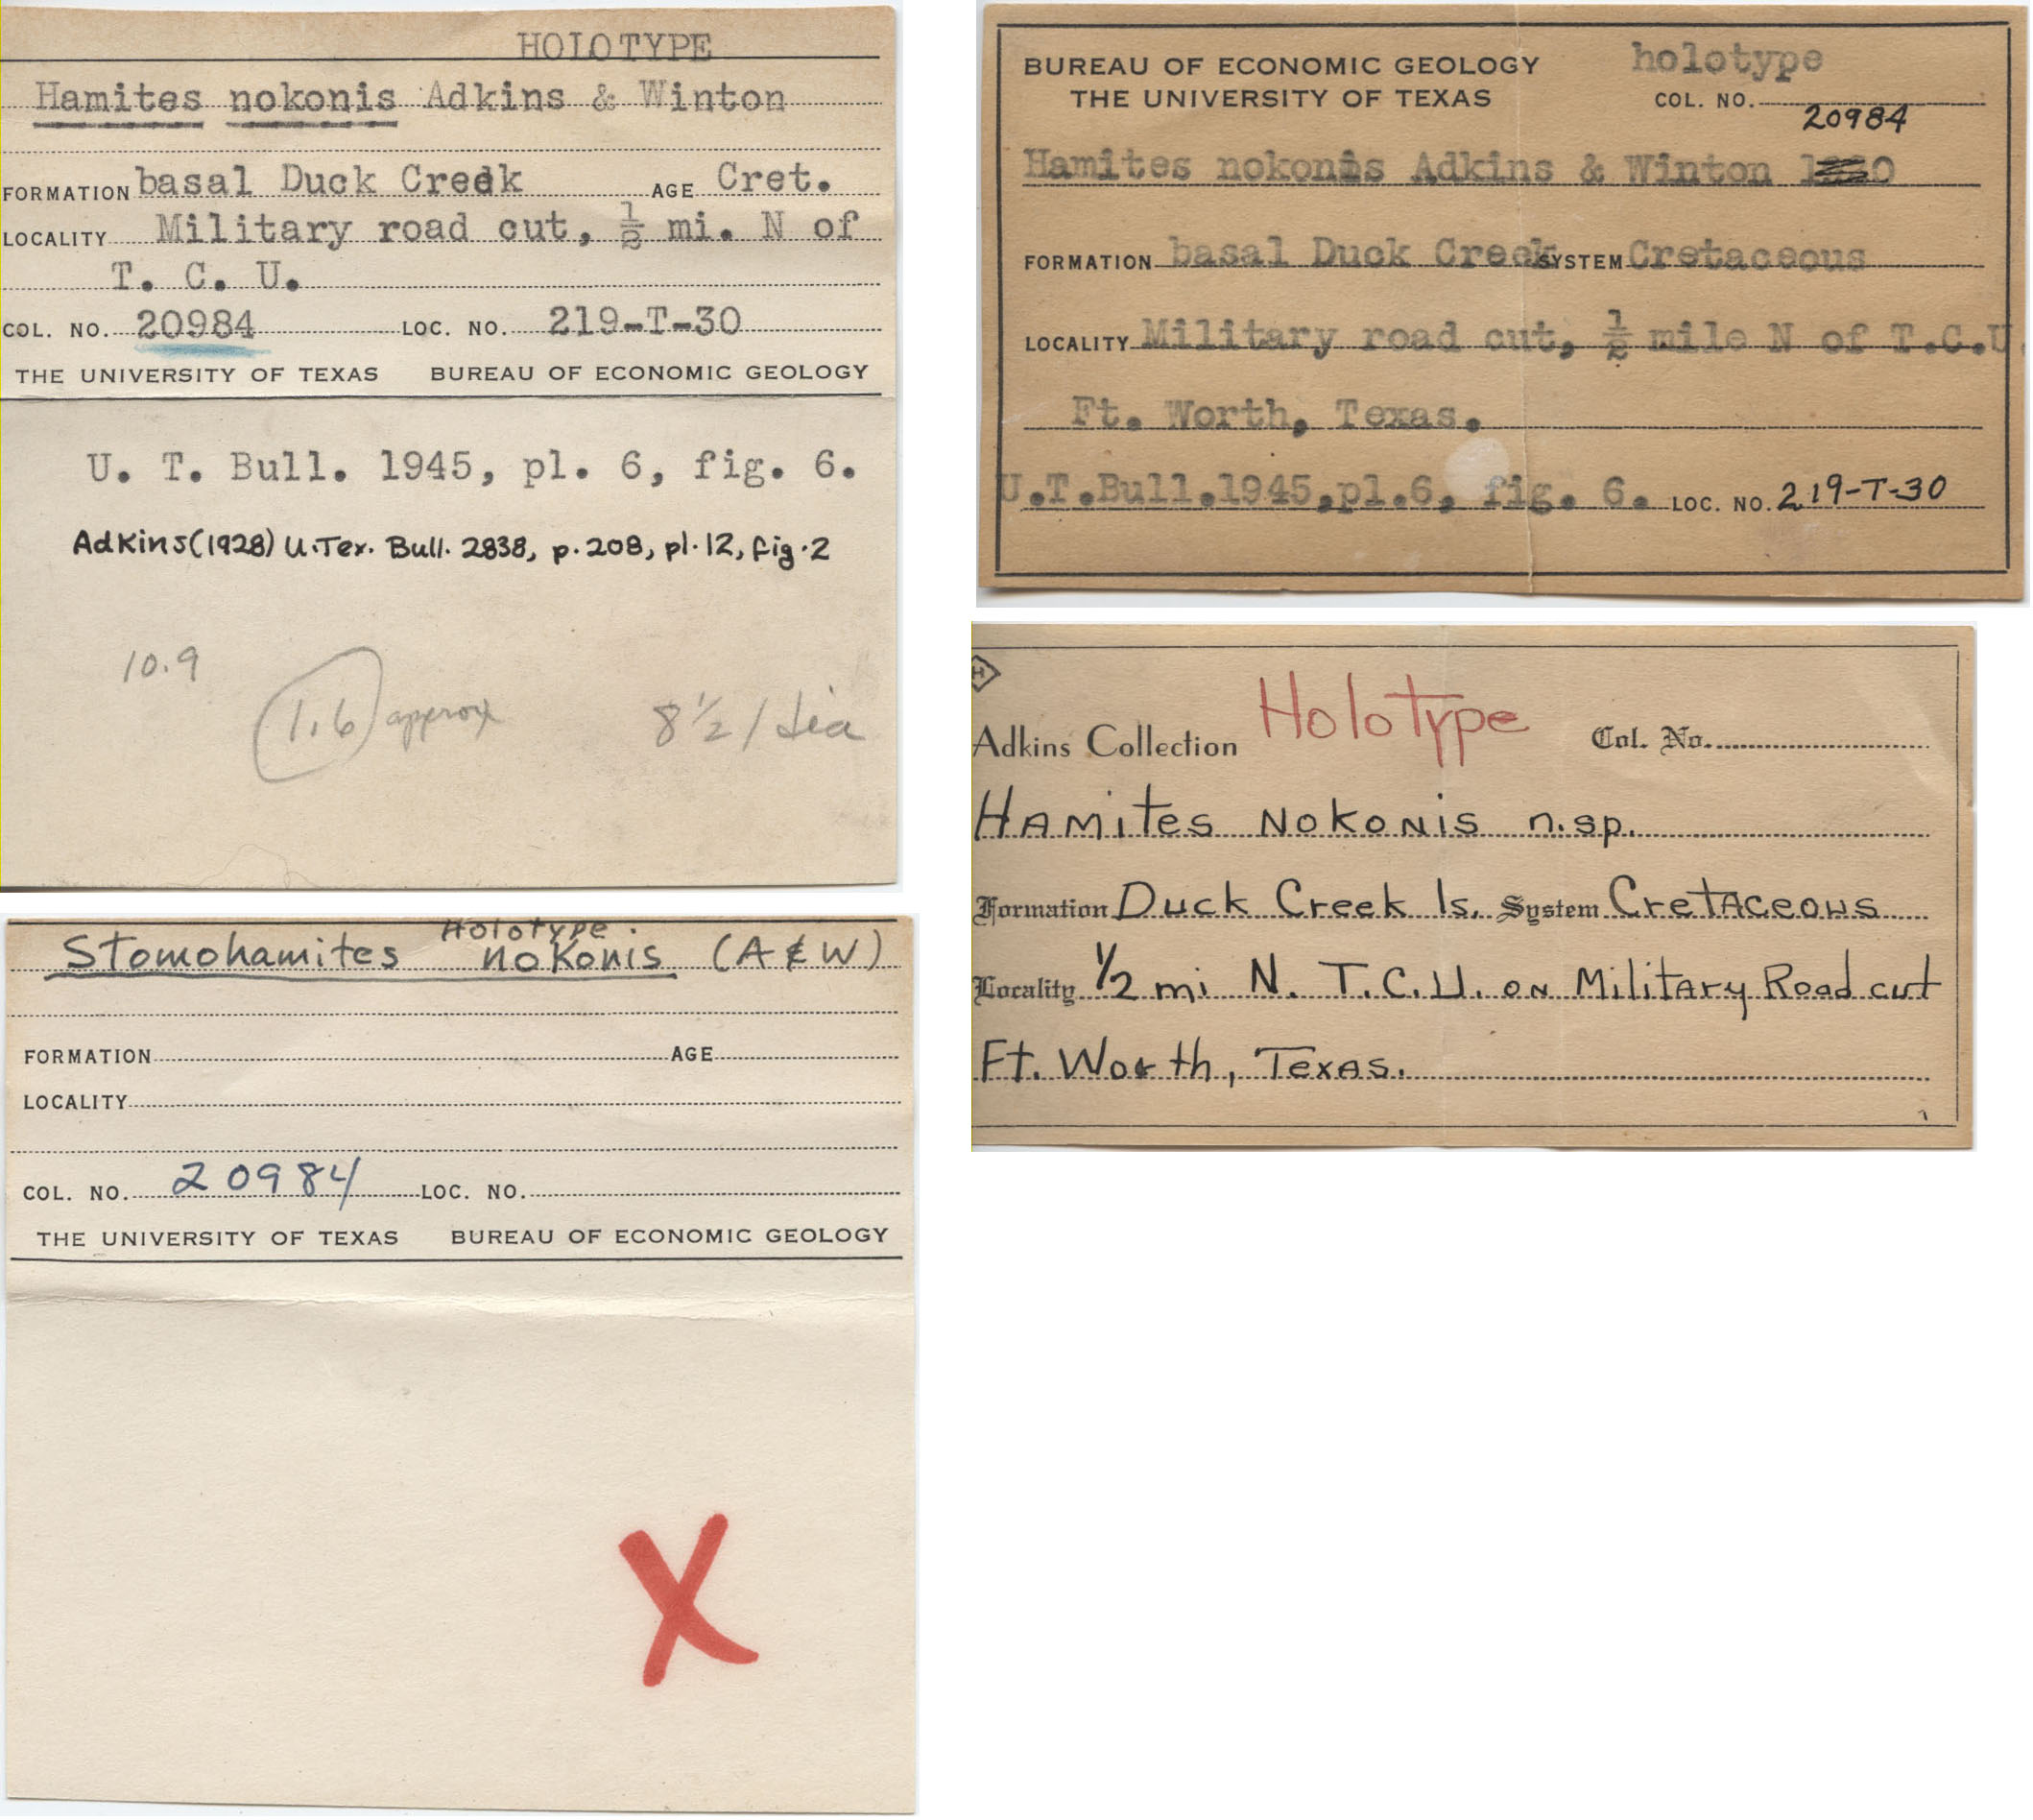 HOLOTYPE
Hamites nokonis Adkins & Winton
FORMATION basal Duck Creek AGE Cret.
LOCALITY Military road cut, ½ mi. N of
T. C. U.
COL. NO. 20984 LOC. NO. 219-T-30
THE UNIVERSITY OF TEXAS BUREAU OF ECONOMIC GEOLOGY
U. T. Bull. 1945, pl. 6, fig. 6.
Adkins (1928) U. Tex. Bull. 2838, p. 208, pl. 12, fig. 2
10.9
1.6 approx 8½ / dia
Holotype.
Stomohamites nokonis (A & W)
FORMATION AGE
LOCALITY
COL. NO. 20984 LOC. NO.
THE UNIVERSITY OF TEXAS BUREAU OF ECONOMIC GEOLOGY
X
BUREAU OF ECONOMIC GEOLOGY holotype
THE UNIVERSITY OF TEXAS COL. NO.
20984
Hamites nokonis Adkins & Winton
FORMATION basal Duck Creek SYSTEM Cretaceous
LOCALITY Military road cut, ½ mile N of T.C.U.
Ft. Worth, Texas.
U.T.Bull.1945,pl.6, fig. 6. LOC. NO. 219-T-30
H
Adkins Collection Holotype Col. No.
Hamites Nokonis n.sp.
Formation Duck Creek ls. System Cretaceous
Locality ½ mi N. T.C.U. on Military Road cut
Ft. Worth, Texas.